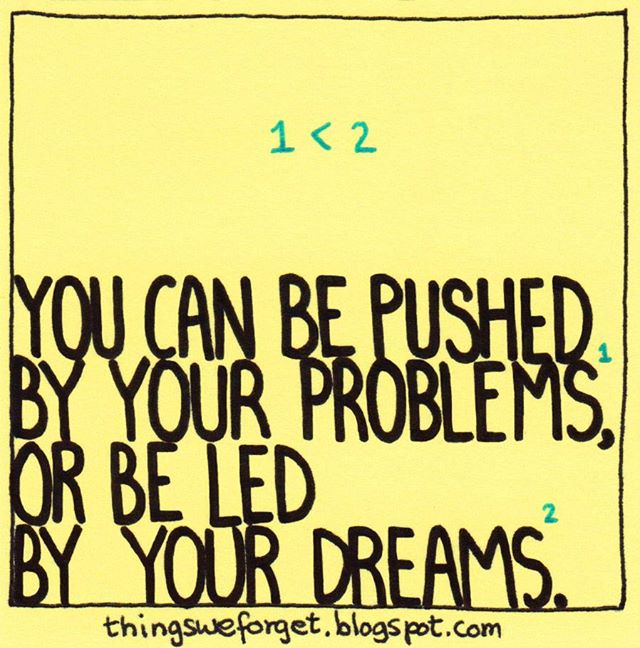 1 < 2
YOU CAN BE PUSHED
BY YOUR PROBLEMS,¹
OR BE LED
BY YOUR DREAMS.²
thingsweforget.blogspot.com